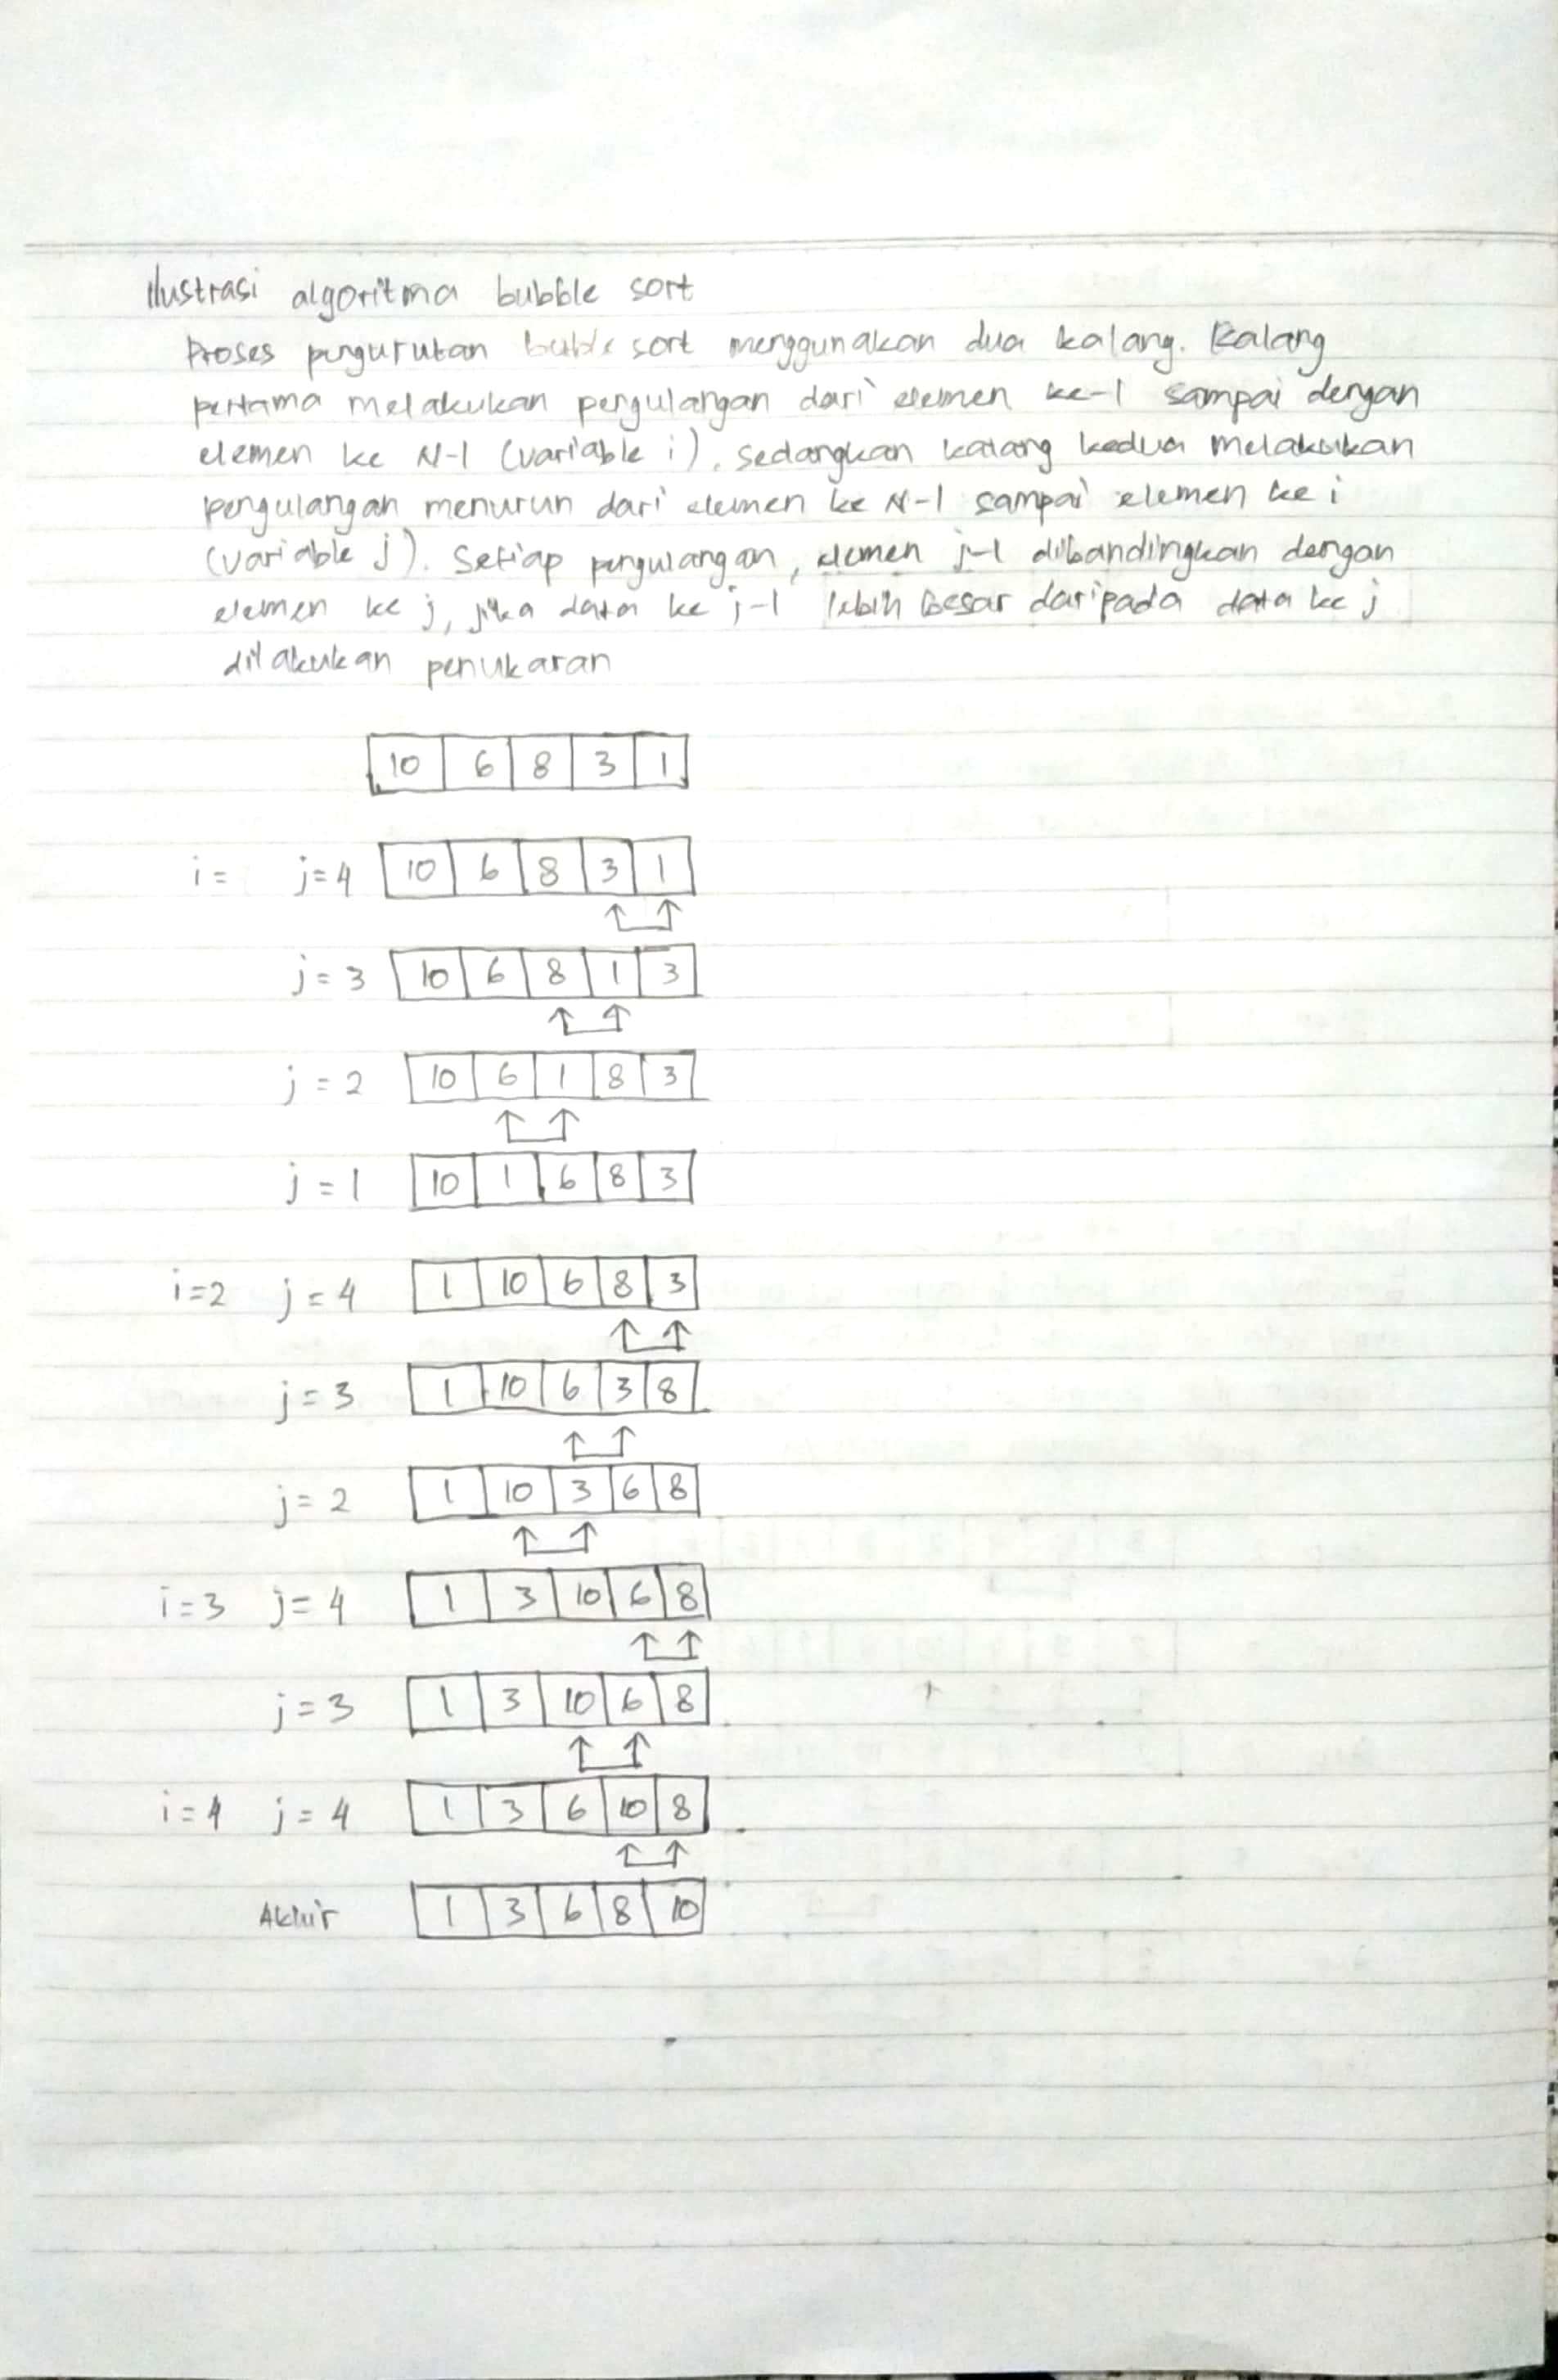 Ilustrasi algoritma bubble sort
Proses pengurutan buble sort menggunakan dua kalang. Kalang
pertama melakukan pengulangan dari elemen ke-1 sampai dengan
elemen ke N-1 (variable i), sedangkan kalang kedua melakukan
pengulangan menurun dari elemen ke N-1 sampai elemen ke i
(variable j). Setiap pengulangan, elemen j-1 dibandingkan dengan
elemen ke j, jika data ke j-1 lebih besar daripada data ke j
dilakukan penukaran
10 6 8 3 1
i= j=4 10 6 8 3 1
j=3 10 6 8 1 3
j=2 10 6 1 8 3
j=1 10 1 6 8 3
i=2 j=4 1 10 6 8 3
j=3 1 10 6 3 8
j=2 1 10 3 6 8
i=3 j=4 1 3 10 6 8
j=3 1 3 10 6 8
i=4 j=4 1 3 6 10 8
Akhir 1 3 6 8 10